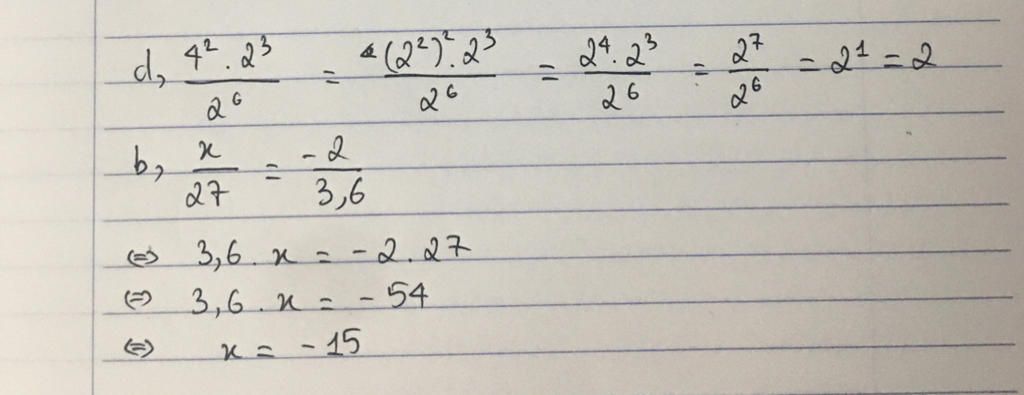 d, 4² . 2³ / 2⁶ = (2²)² . 2³ / 2⁶ = 2⁴ . 2³ / 2⁶ = 2⁷ / 2⁶ = 2¹ = 2
b, x / 27 = -2 / 3,6
⇔ 3,6 . x = -2 . 27
⇔ 3,6 . x = -54
⇔ x = -15